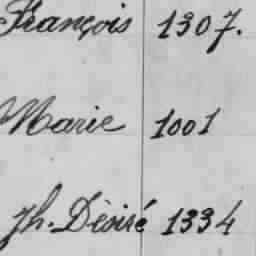 François 1307.
Marie 1001
Jh. Désiré 1334